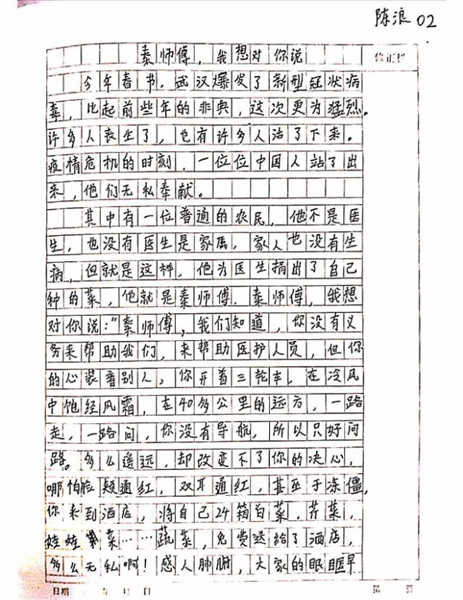 陈浪 02
秦师傅，我想对你说
修正栏
今年春节，武汉爆发了新型冠状病
毒，比起前些年的非典，这次更为猛烈。
许多人丧生了，也有许多人活了下来。
疫情危机的时刻，一位位中国人站了出
来，他们无私奉献。
其中有一位普通的农民，他不是医
生，也没有医生是家属，家人也没有生
病，但就是这种，他为医生捐出了自己
种的菜，他就是秦师傅。秦师傅，我想
对你说：“秦师傅，我们知道，你没有义
务来帮助我们，来帮助医护人员，但你
的心装着别人，你开着三轮车，在冷风
中饱经风霜，在40多公里的远方，一路
走，一路问，你没有导航，所以只好问
路。多么遥远，却改变不了你的决心，
哪怕脸颊通红，双耳通红，甚至于冻僵，
你来到酒店，将自己24箱白菜，芹菜，
娃娃菜……蔬菜，免费送给了酒店，
多么无私啊！感人肺腑，大家的眼眶早
日期 年 月 日
第 页